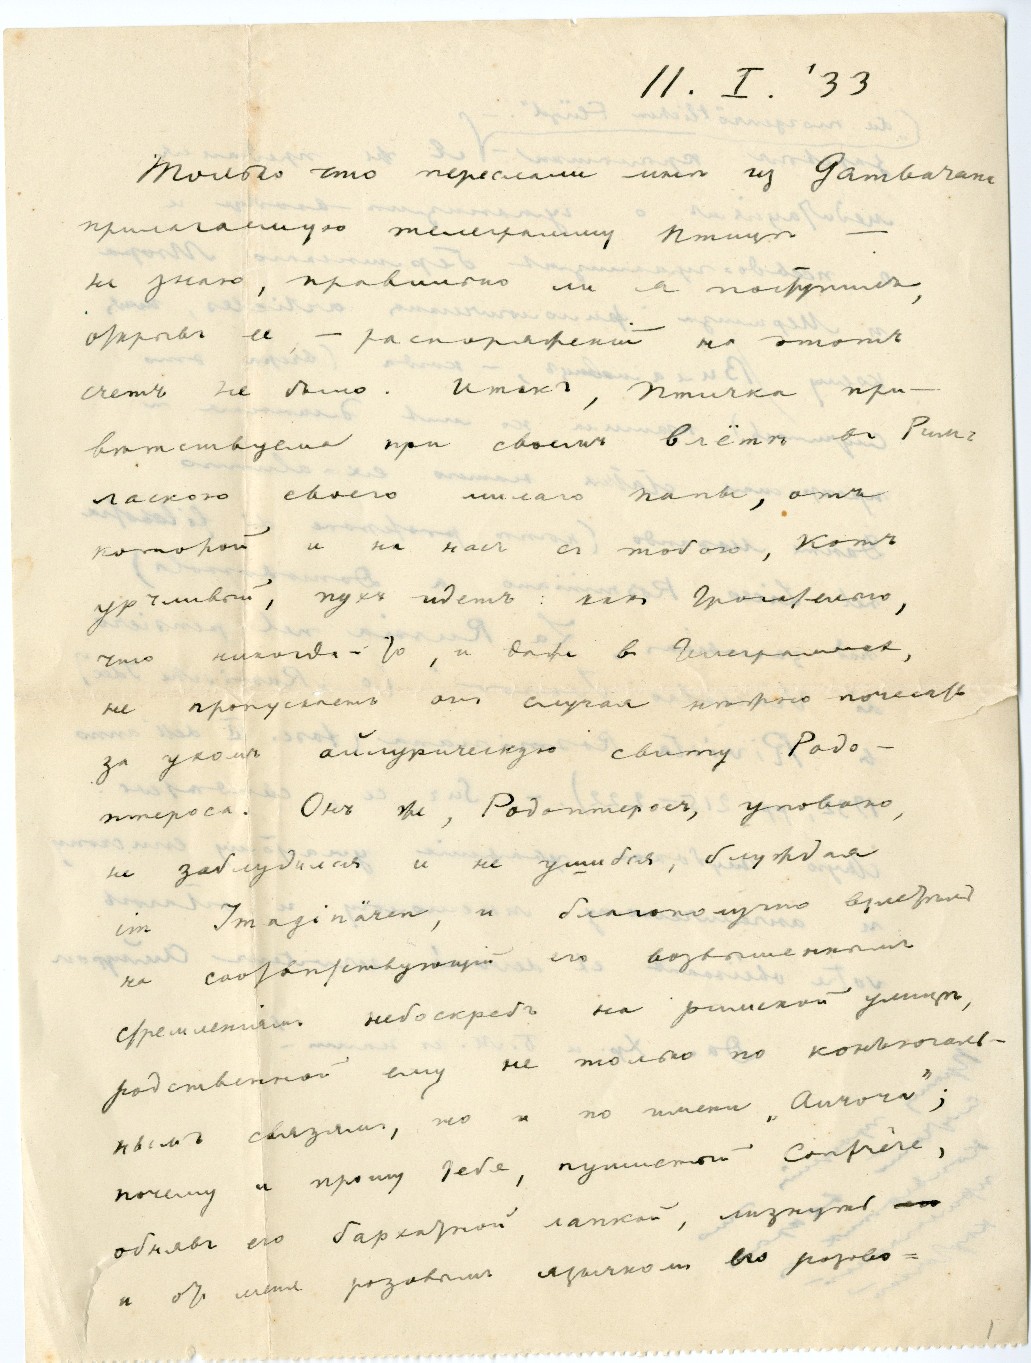 11. I. '33
Только что переслали мнѣ из Gambarana
прилагаемую телеграмму Птицѣ —
не знаю, правильно ли я поступилъ,
открывъ ее, — распоряженій на этотъ
счетъ не было. Итакъ, Птичка при-
вѣтствуема при своемъ влётѣ въ Римъ
ласкою своего милаго папы, отъ
которой и на насъ съ тобою, Котъ
урчливый, пухъ идетъ: какъ трогательно,
что никогда-то, и даже в телеграммах,
не пропускаетъ онъ случая нѣжно почесать
за ухомъ айлурическую свиту Родо-
птероса. Онъ же, Родоптеросъ, уповаю,
не заблудился и не ушибся, блуждая
im Imaginären, и благополучно взлетѣлъ
на соотвѣтствующій его возвышеннымъ
стремленіямъ небоскребъ на римской улицѣ,
родственной ему не только по
нымъ связямъ, но и по имени
почему и прошу тебя, пушистый Confrère,
обнявъ его бархатной лапкой, лизнуть
и отъ меня розовымъ язычкомъ его розово=